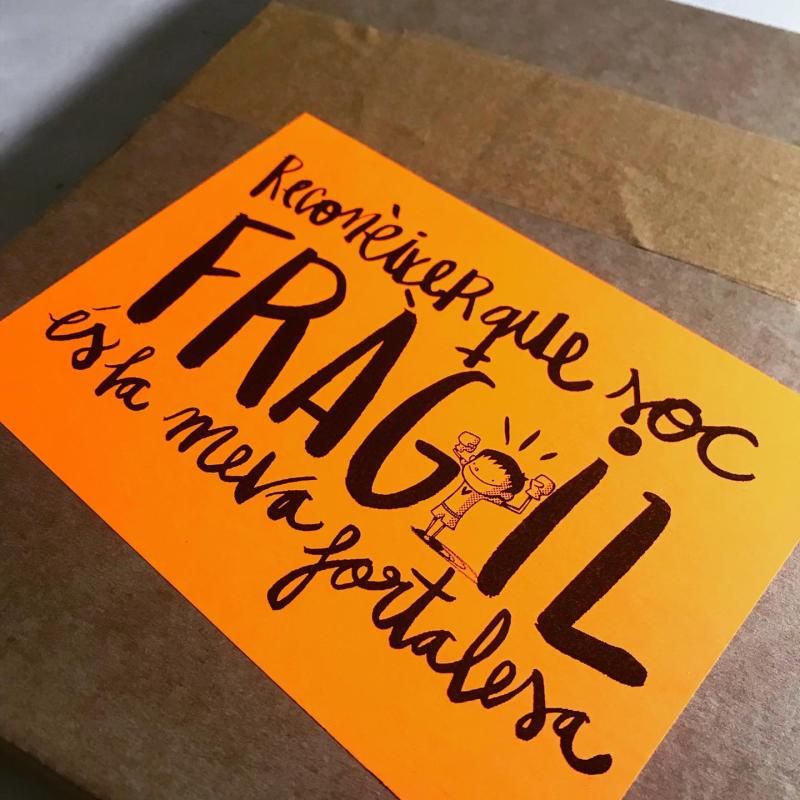 Reconèixer que soc
FRÀGIL
és la meva fortalesa